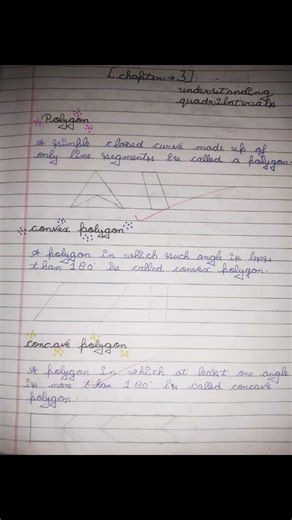 [chapter → 3]
understanding
quadrilaterals
Polygon
A simple closed curve made up of
only line segments is called a polygon.
convex polygon
A polygon in which such angle is less
than 180° is called convex polygon.
concave polygon
A polygon in which at least one angle
is more than 180° is called concave
polygon.